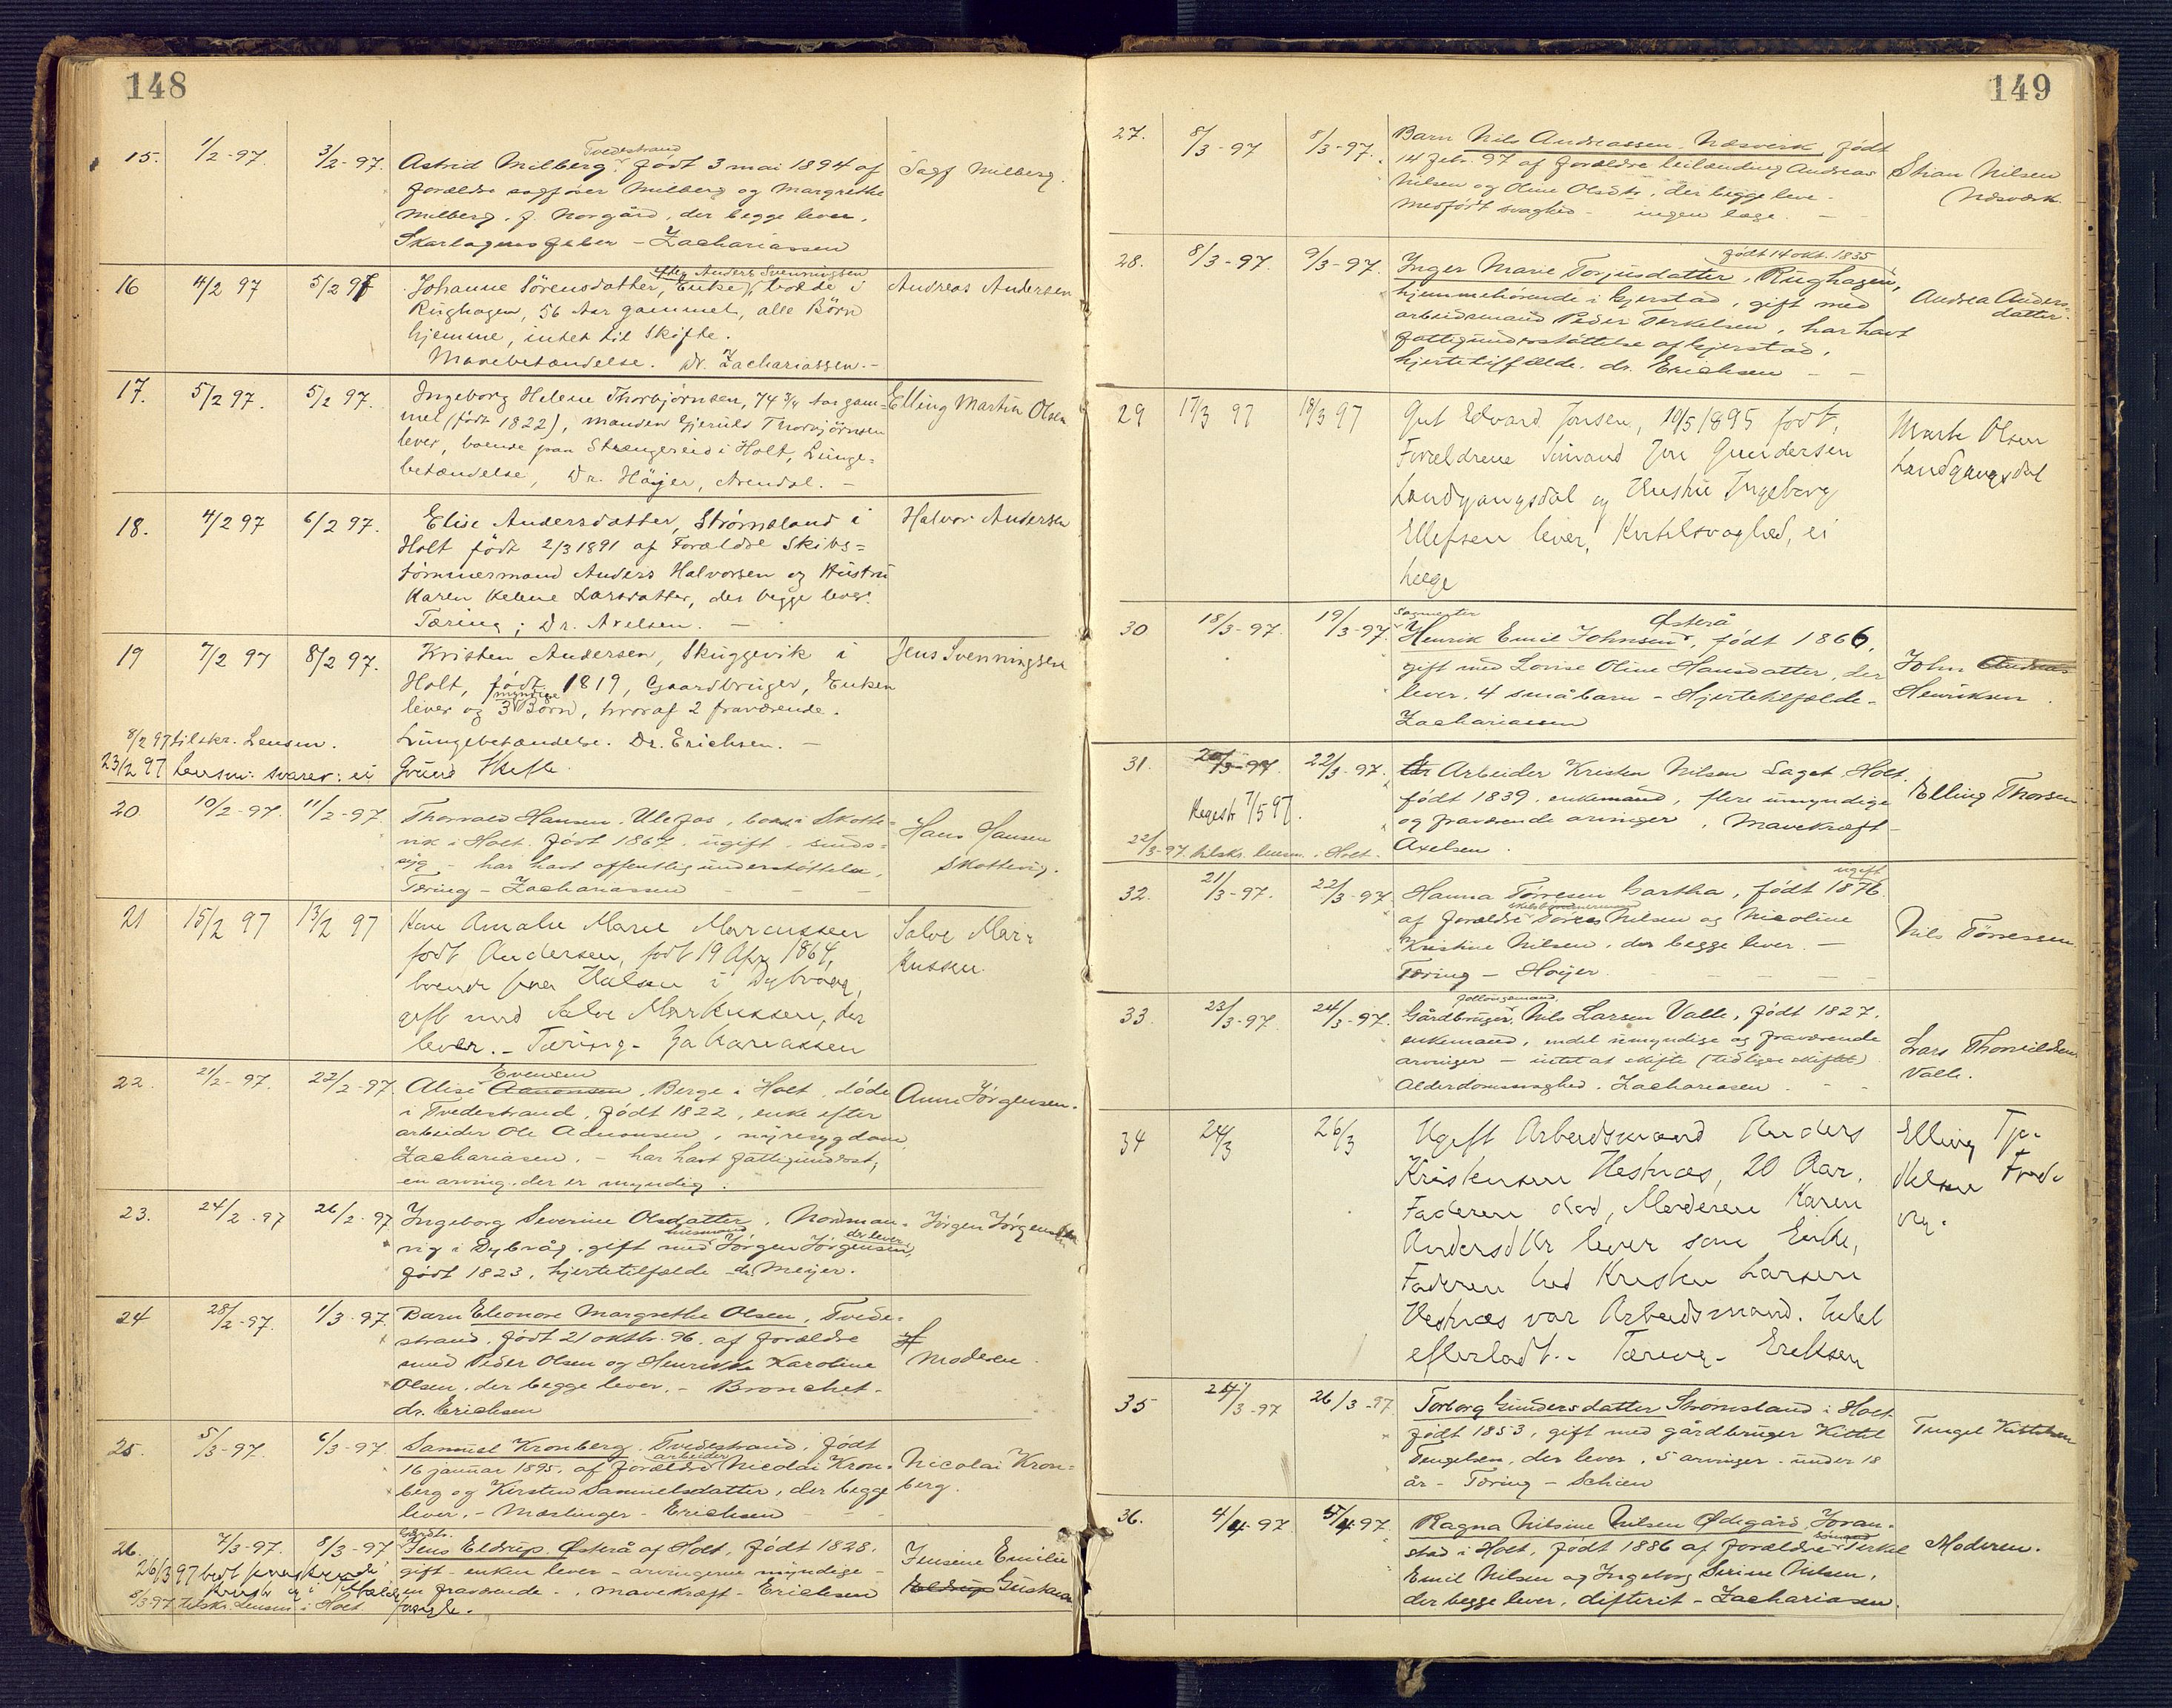 148
15. 1/2-97. 3/2-97. Astrid Milberg, Tvedestrand født 3 mai 1894 af Sagf Milberg.
forældre sagfører Milberg og Margrethe
Milberg, f. Norgård, der begge lever.
Skarlagensfeber - Zachariassen
16 4/2 97 5/2 97 Johanne Sörensdatter, Enke efter Anders Svenningsen, boede i Andreas Andersen
Ringhagen, 56 Aar gammel, alle Börn
hjemme, intet til Skifte.
Mavebetændelse. Dr. Zachariassen. -
17. 5/2 97. 5/2 97. Ingeborg Helene Thorbjörnsen, 74 3/4 Aar gam= Elling Martin Olsen
mel (født 1822), manden Gjeruld Thorbjörnsen
lever, boende paa Strængereid i Holt, Lunge=
betændelse, Dr. Höyer, Arendal. -
18. 4/2 97 6/2 97. Elise Andersdatter, Strømsland i Halvor Andersen
Holt født 2/3 1891 af Forældre Skibs=
tømmermand Anders Halvorsen og Hustru
Karen Helene Larsdatter, der begge lever.
Tæring; Dr. Axelsen. -
19 7/2 97 8/2 97. Kristen Andersen, Skuggevik i Jens Svenningsen
Holt, født 1819, Gaardbruger, Enken
lever og 3 myndige Börn, hvoraf 2 fraværende.
8/2 97 tilskr. Lensm. Lungebetændelse. Dr. Erichsen. -
23/2 97 Lensm: svarer: ei Grund Skifte.
20 10/2-97. 11/2-97. Thorvald Hansen, Ulefos, boede i Skotte= Hans Hansen
vik i Holt. født 1867. ugift. sinds= Skottevig.
syg - har havt offentlig understöttelse,
Tæring - Zachariassen - - -
21 15/2 97 13/2 97 Kone Amalie Marie Marcussen Salve Mar=
født Andersen, født 19 Apr 1864, kussen
boende paa Halsen i Dybvaag,
gift med Salve Markussen, der
lever. - Tæring - Zakariassen
22. 21/2-97. 22/2-97. Alise Aanonsen Evensen, Berge i Holt, döde Anne Jørgensen.
i Tvedestrand, født 1822, enke efter
arbeider Ole Aanonsen, nyresygdom
Zachariasen. - har havt fattigunderst;
en arving, der er myndig.
23. 24/2-97 26/2-97 Ingeborg Severine Olsdatter, Nordman= Jörgen Jörgensen
vig i Dybvåg, gift med Jörgen Jörgensen, der lever
født 1823, hjertetilfælde - dr Meyer.
24 28/2-97. 1/3-97. Barn Eleonore Margrethe Olsen, Tvede=
strand, født 21 oktbr. 96. af forældre Moderen.
smed Peder Olsen og Henrikke Karoline
Olsen, der begge lever. - Bronchet.
dr. Erichsen
25. 5/3-97. 6/3-97. Samuel Kronberg, Tvedestrand, født
16 januar 1895, af forældre arbeider Nicolai Kron= Nicolai Kron=
berg og Kirsten Samuelsdatter, der begge berg.
lever. - Mæslinger - Erichsen - -
26. 7/3-97. 8/3-97 Gårdbr. Jens Eldrup, Østerå af Holt, født 1828. Jensine Emilie
gift - enken lever - arvingerne myndige - Gustava
en fraværende -, mavekræft - Erichsen
8/3-97 tilskr. Lensm i Holt.
149
27. 8/3-97 8/3-97. Barn Nils Andreassen, Næsverk, født
14 febr. 97 af forældre leilænding Andreas Stian Nilsen
Nilsen og Oline Olsdtr, der begge leve. Næsverk.
Medfört svaghed - ingen læge. -
28. 8/3-97. 9/3-97. Inger Marie Torjusdatter, født 14 okt. 1835 Ringhagen,
hjemmehørende i Gjerstad, gift med Andrea Anders=
arbeidsmand Peder Terkelsen, har havt datter.
fattigunderstöttelse af Gjerstad,
hjertetilfælde. dr. Erichsen - -
29 17/3 97 18/3 97 Gut Edvard Jonsen, 10/5 1895 født, Mark Olsen
Forældrene Simand Jon Gundersen Landgangsdal
Landgangsdal og Hustru Ingeborg
Ellefsen lever, Kirtelsvaghed, ei
Læge
30 18/3-97. 19/3-97. Sagmester Henrik Emil Johnsen, Østerå født 1866,
gift med Lovise Oline Hansdatter, der John Andreas
lever. 4 småbarn - Hjertetilfælde - Henriksen.
Zachariassen
31. 20/3-97 22/3-97. Arbeider Kristen Nilsen Saget, Holt. Elling Thorsen
født 1839, enkemand, flere umyndige
Regestr 7/5 97. og fraværende arvinger, Mavekræft -
22/3-97. tilskr. lensm. i Holt. Axelsen.
32. 21/3-97. 22/3-97. Hanna Tørresen Gartha, født 1876 ugift
af forældre skibstømmermand Törres Nilsen og Nicoline Nils Törresen.
Kristine Nilsen, der begge lever. -
Tæring - Höyer. - - - -
33. 23/3-97. 24/3-97. Gårdbruger, Nils Larsen Valle, født 1827.
enkemand, endel umyndige og fraværende Lars Thorvildsen
arvinger - intet at skifte (tidligere skiftet). Valle.
Alderdomssvaghed. Zachariasen. - -
34 24/3 26/3 Ugift Arbeidsmand Anders Elling
Kristensen Hestnæs, 20 Aar.
Faderen död, Moderen Karen
Andersdtr lever som Enke,
Faderen hed Kristen Larsen
Hestnæs var Arbeidsmand. Intet
efterladt. - Tæring - Eriksen
35 24/3-97 26/3-97 Torborg Gundersdatter Strømsland i Holt
født 1853, gift med gårdbruger Kittel Tengel Kittelsen
Tengelsen, der lever, 5 arvinger - under 18
år - Tæring - Schien
36. 4/4-97. 5/4-97. Ragna Nilsine Nilsen Ødegård, Goran=
stad i Holt, født 1886 af forældre sömand Terkel Moderen.
Emil Nilsen og Ingeborg Serine Nilsen,
der begge lever, difterit - Zachariasen.